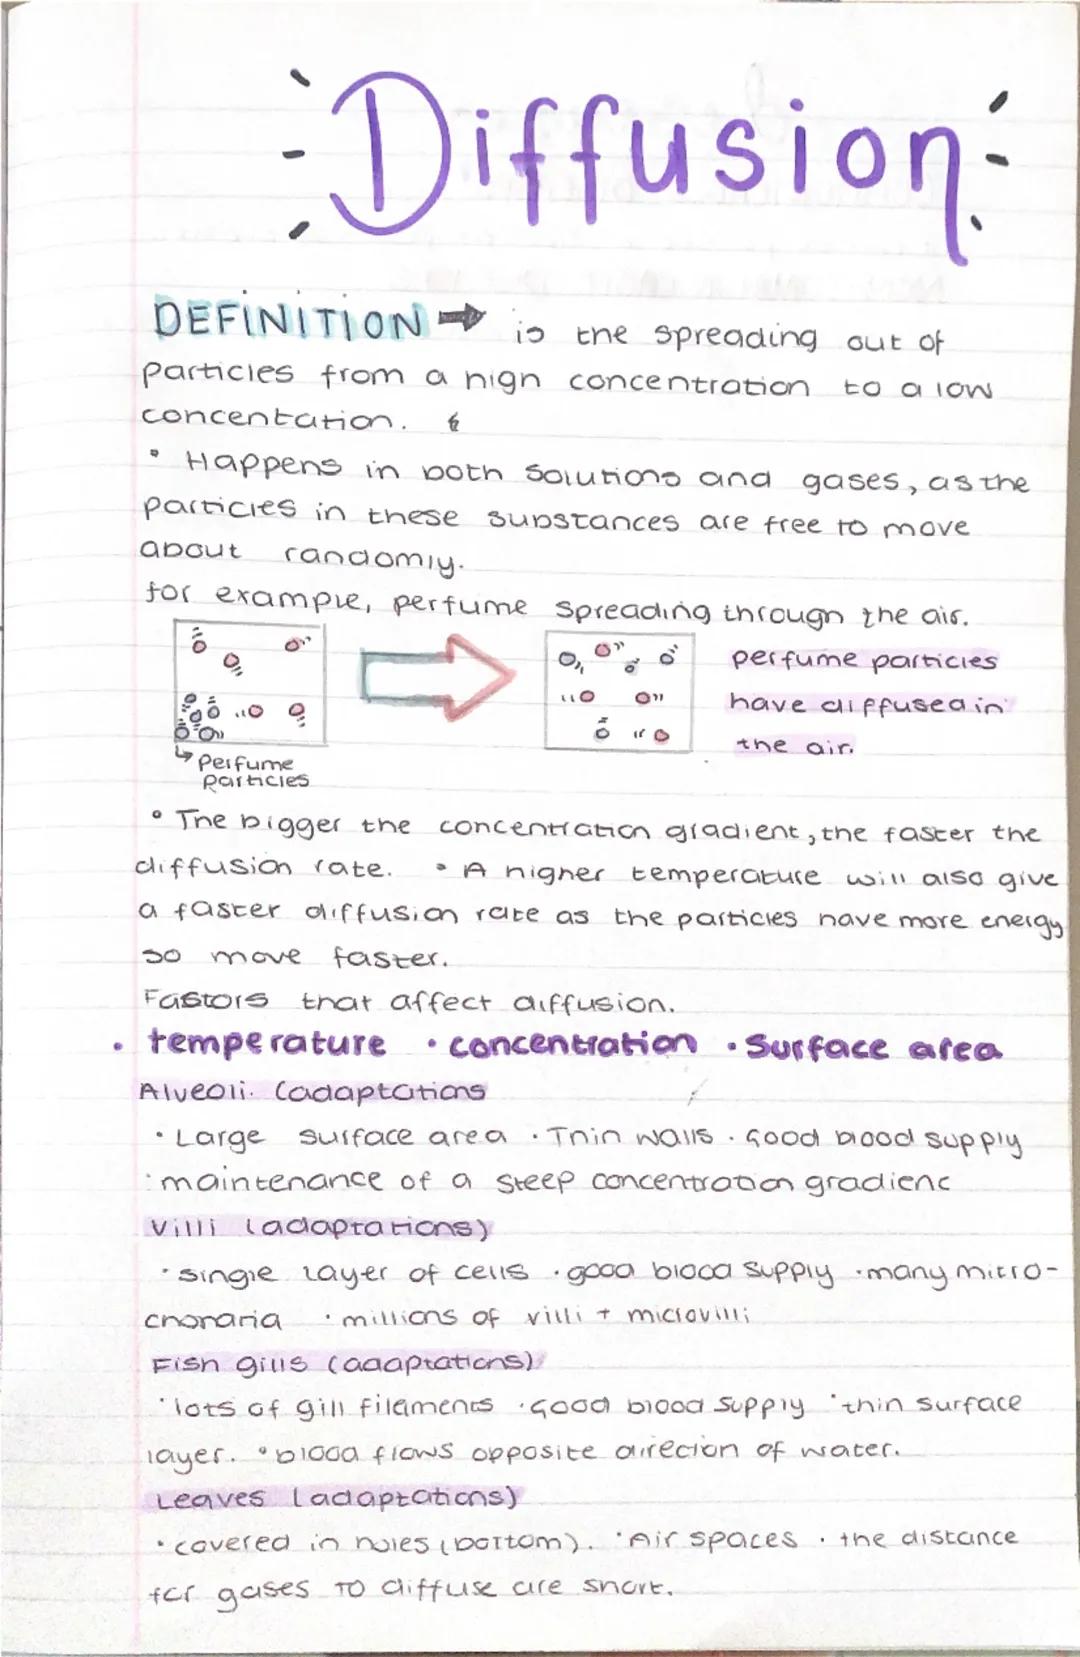 Diffusion
DEFINITION → is the spreading out of
particles from a high concentration to a low
concentation.
• Happens in both solutions and gases, as the
particles in these substances are free to move
about randomly.
for example, perfume spreading through the air.
perfume particles
have diffused in
the air.
↳ Perfume
particles
• The bigger the concentration gradient, the faster the
diffusion rate. • A higher temperature will also give
a faster diffusion rate as the particles have more energy
so move faster.
Fastors that affect diffusion.
• temperature • concentration • Surface area
Alveoli. (adaptations
• Large surface area • Thin walls • Good blood supply
• maintenance of a steep concentration gradient
Villi (adaptations)
• single layer of cells • good blood supply • many mitro-
chondria • millions of villi + microvilli
Fish gills (adaptations)
• lots of gill filaments • Good blood supply • thin surface
layer. • blood flows opposite direcion of water.
Leaves (adaptations)
• covered in holes (bottom). • Air spaces • the distance
for gases to diffuse are short.